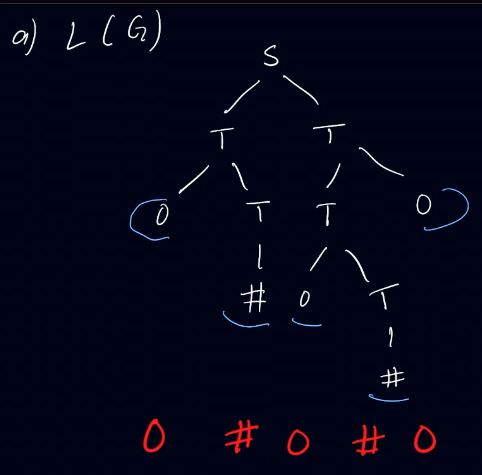 a) L(G)
S
T T
0 T T 0
# 0 T
#
0 # 0 # 0